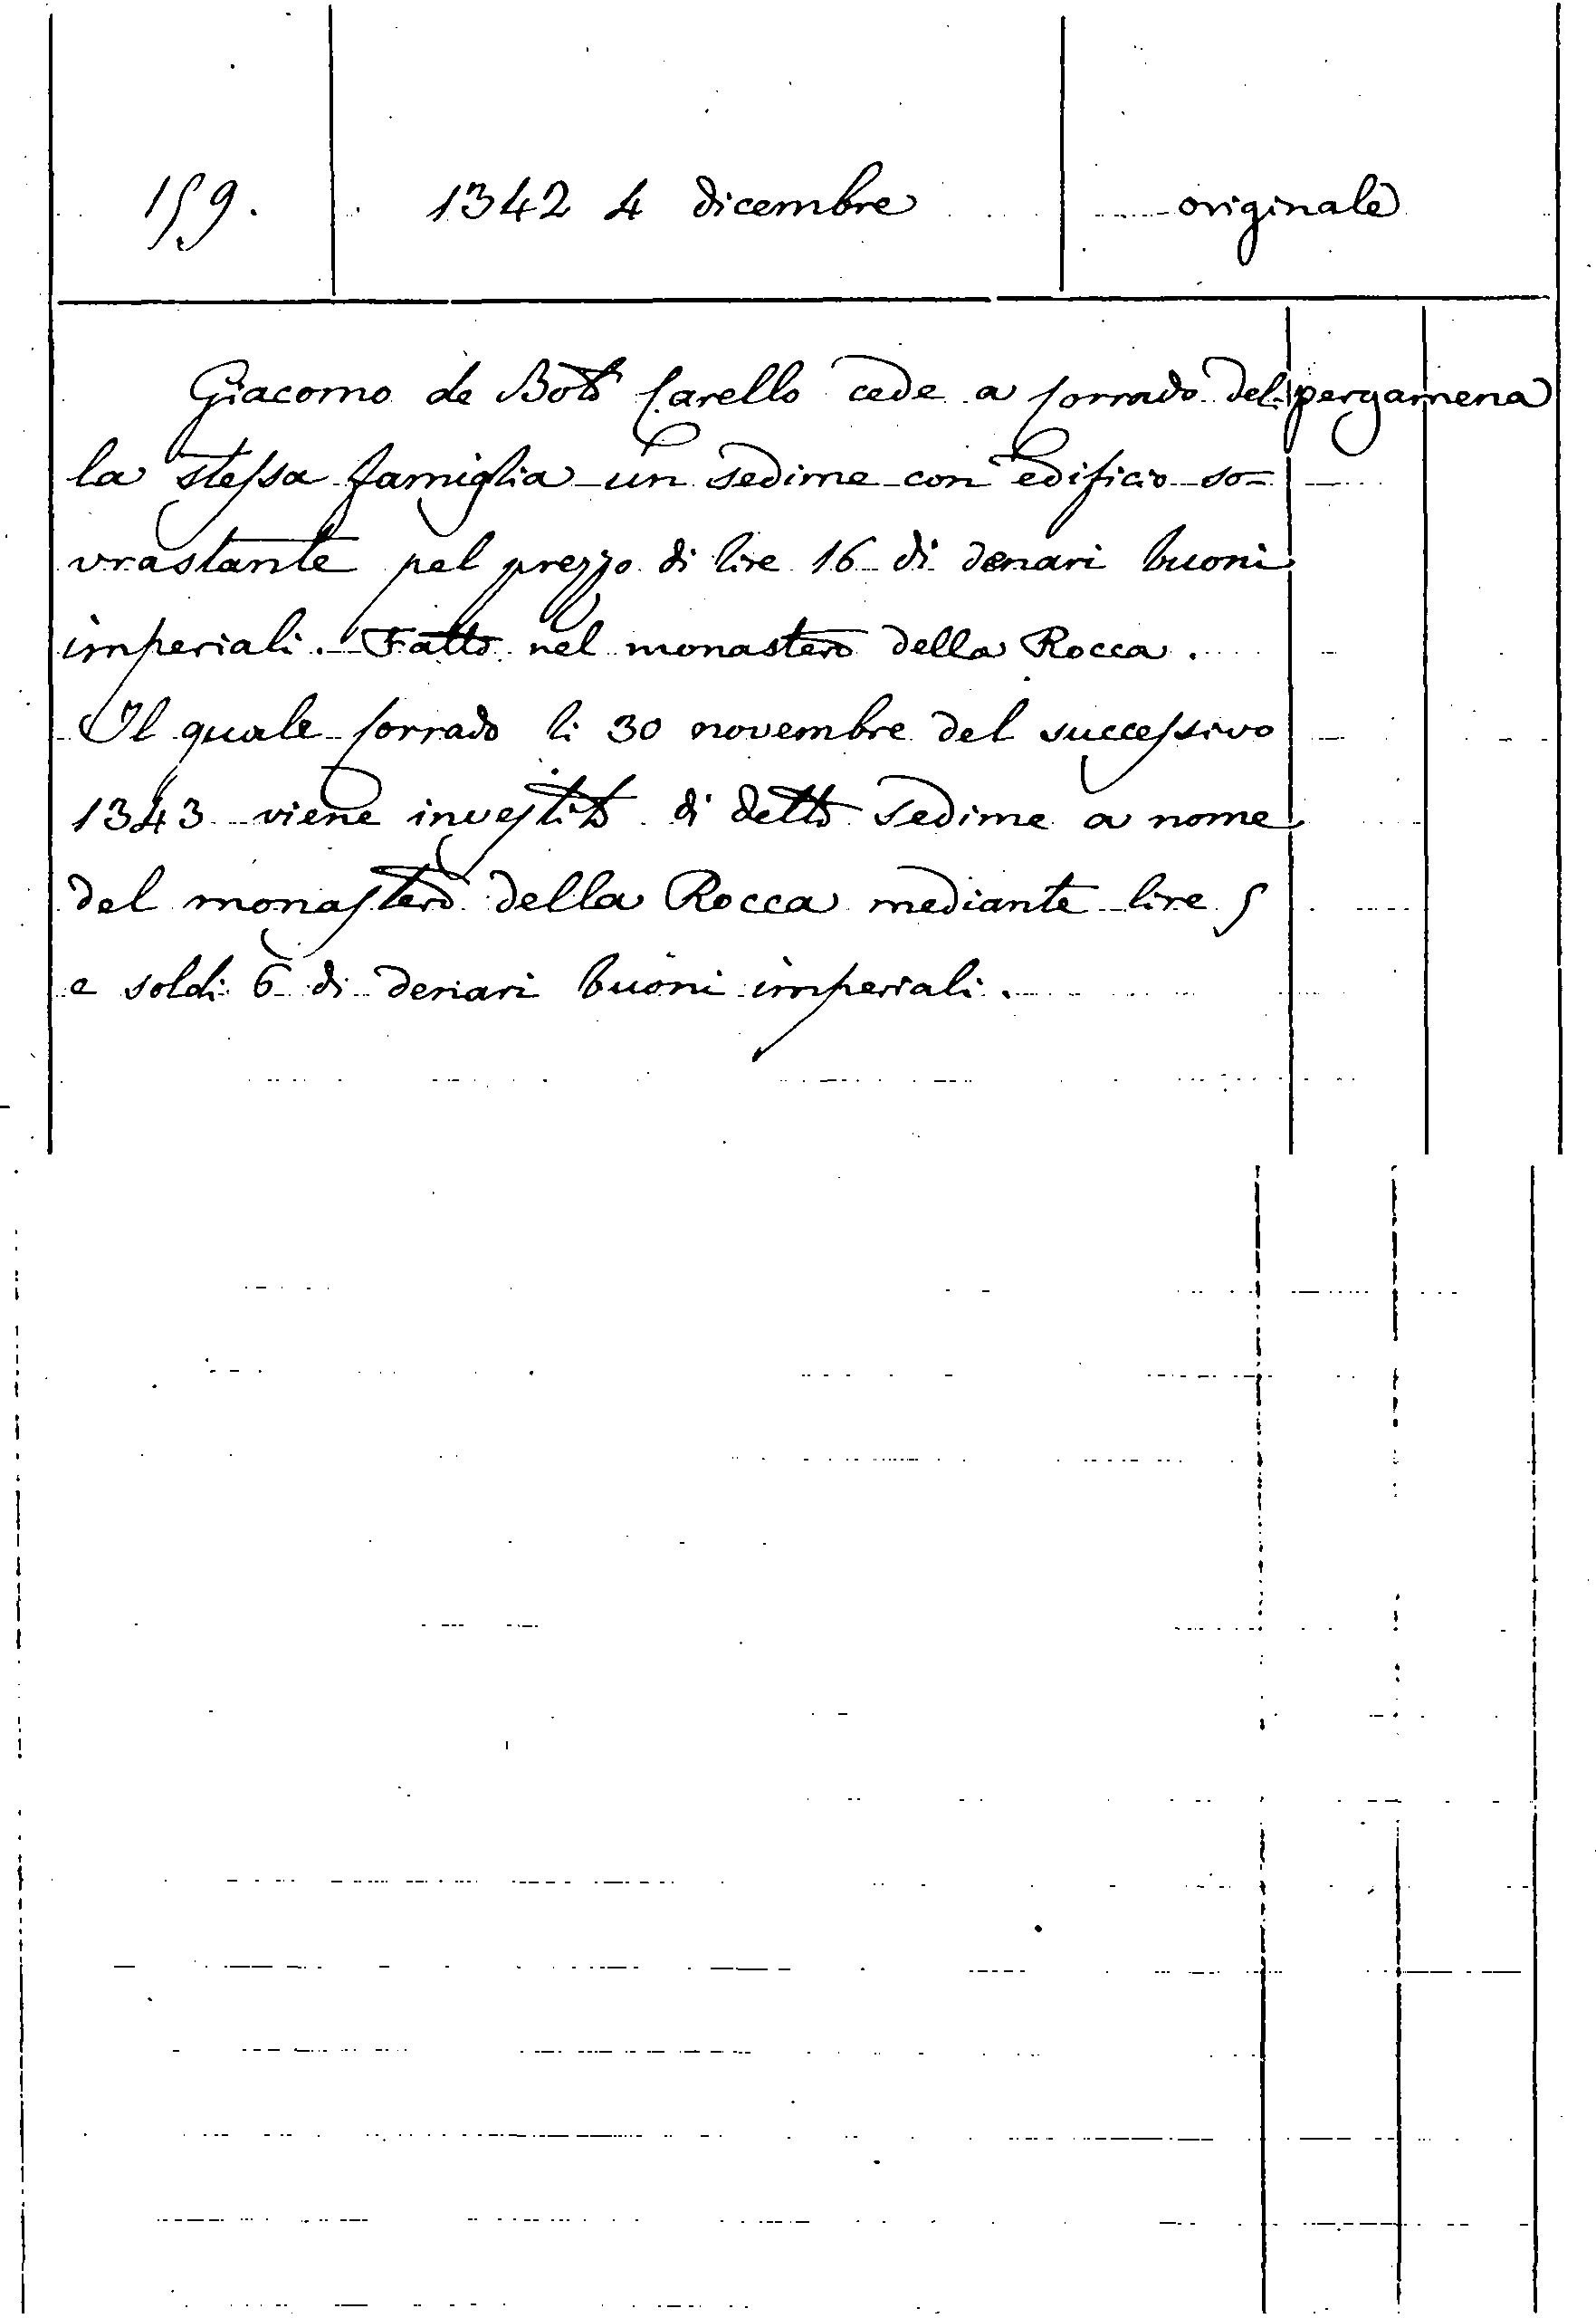 159. 1342 4 dicembre originale
Giacomo de Boto Carello cede a Corrado del- pergamena
la stessa famiglia un sedime con edificio so=
vrastante pel prezzo di lire 16 di denari buoni
imperiali. Fatto nel monastero della Rocca.
Il quale Corrado li 30 novembre del successivo
1343 viene investito di detto sedime a nome
del monastero della Rocca mediante lire 5
e soldi 6 di denari buoni imperiali.